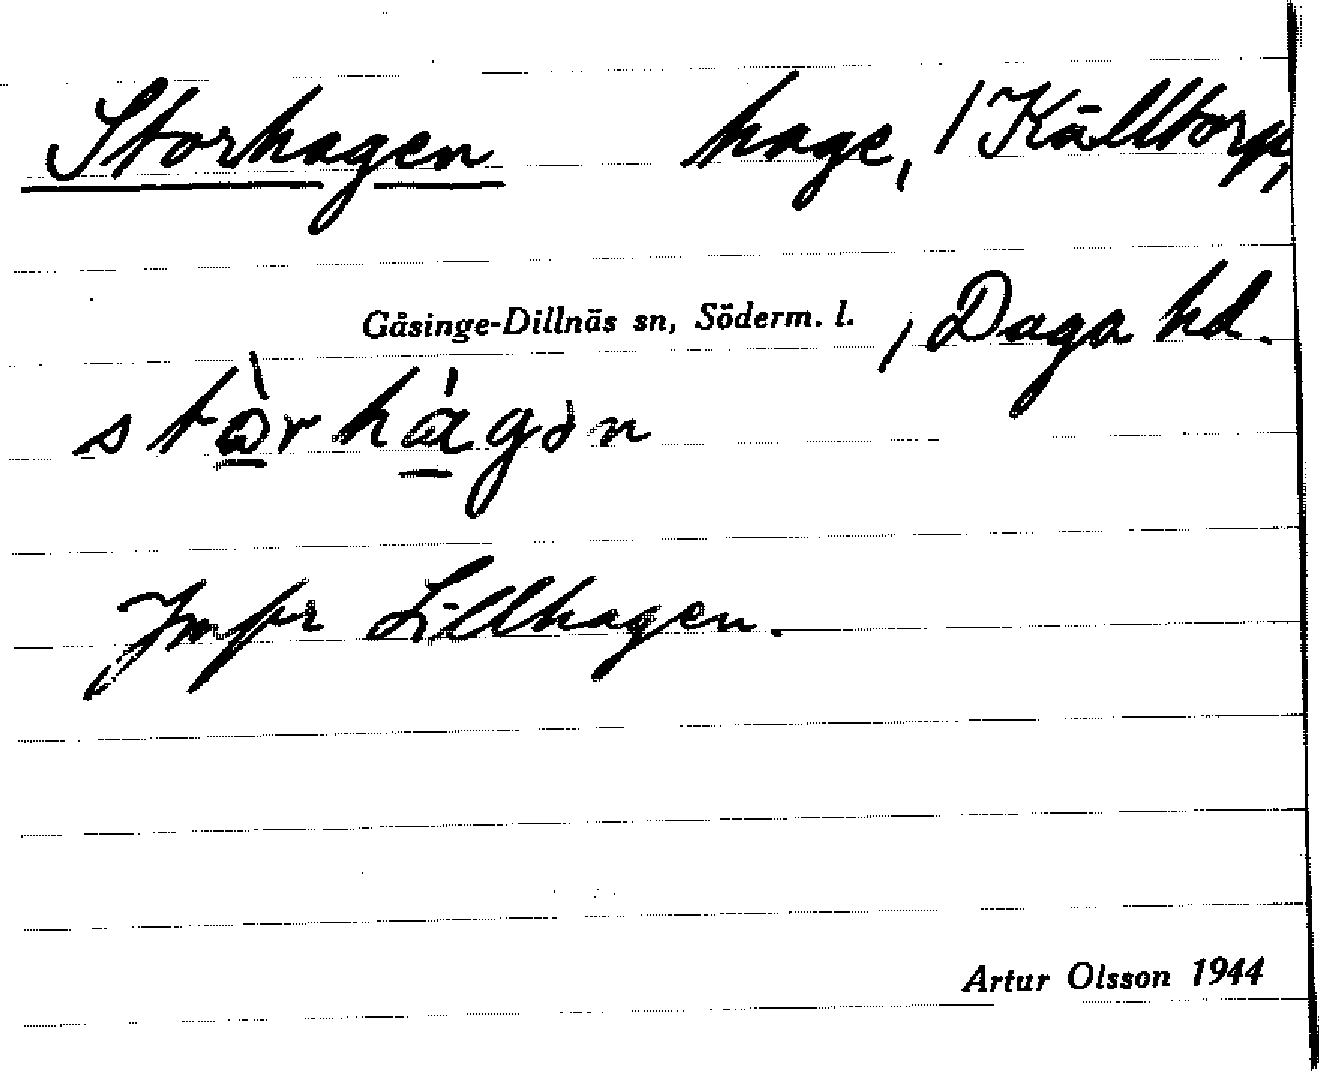 Storhagen hage, / Källtorp,
Gåsinge-Dillnäs sn, Söderm. l. , Daga hd.
stòrhágən
Jmfr Lillhagen.
Artur Olsson 1944